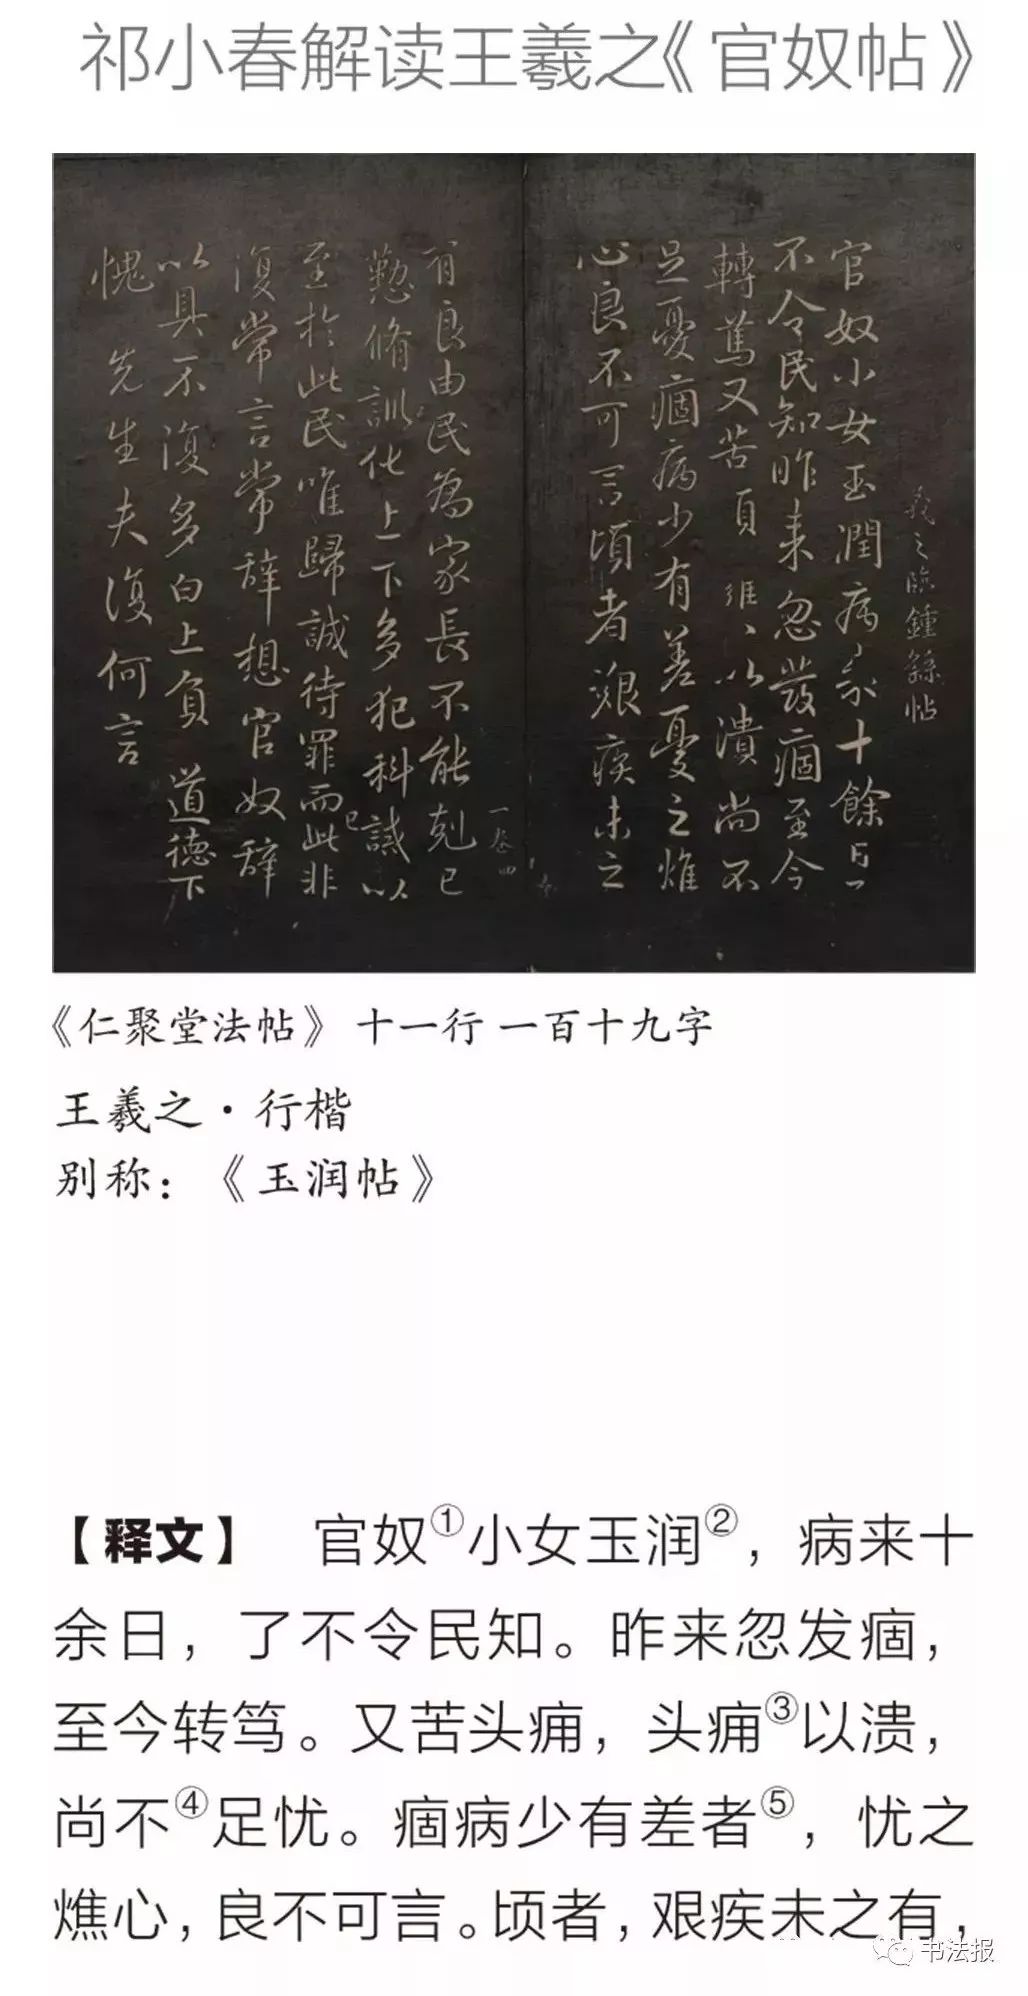 祁小春解读王羲之《官奴帖》
羲之临鍾繇帖
官奴小女玉潤病来十餘日了
不令民知昨来忽發痼至今
轉篤又苦頭
以潰尚不
足憂痼病少有差憂之燋
心良不可言頃者艱疾未之
有良由民為家長不能剋己
懃脩訓化上下多犯科誡以
至於此民唯歸誠待罪而此非
復常言常辭想官奴辭
以具不復多白上負 道德下
愧 先生夫復何言
一卷四
《仁聚堂法帖》 十一行 一百十九字
王羲之·行楷
别称：《玉润帖》
【释文】 官奴①小女玉润②，病来十
余日，了不令民知。昨来忽发痼，
至今转笃。又苦头痈，头痈③以溃，
尚不④足忧。痼病少有差者⑤，忧之
燋心，良不可言。顷者，艰疾未之有，
书法报